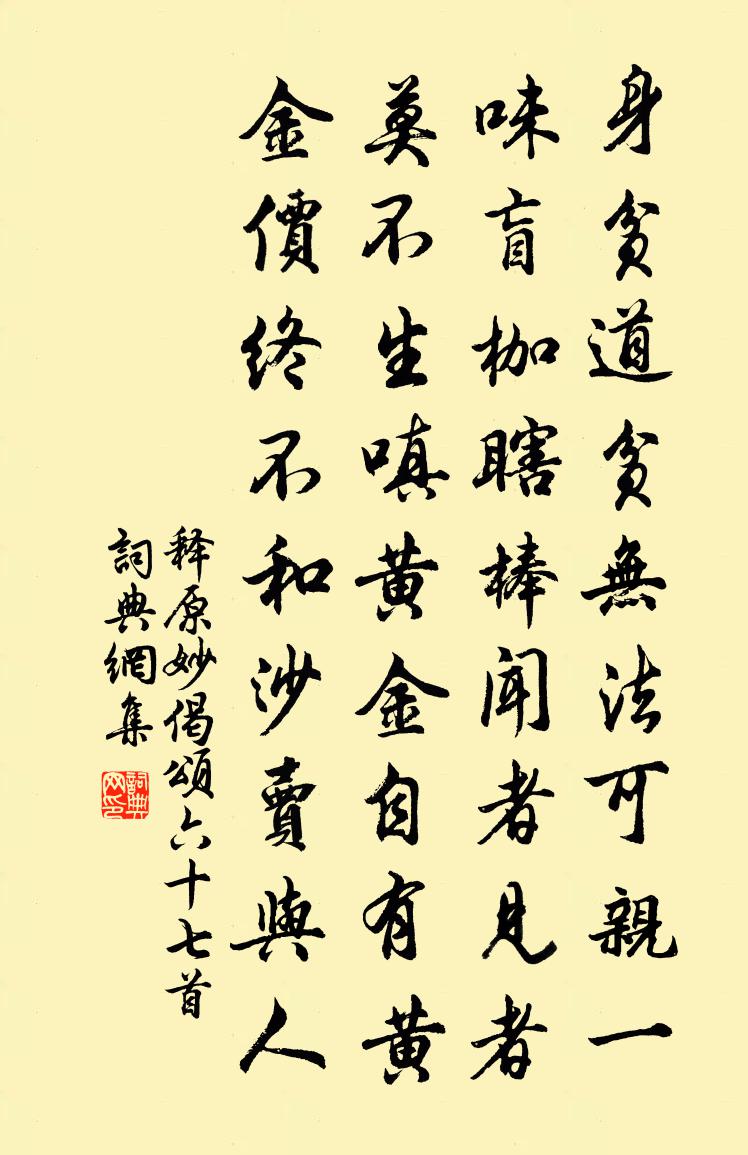 身貧道貧無法可親一
味盲枷瞎棒聞者見者
莫不生嗔黄金自有黄
金價終不和沙賣與人
释原妙偈頌六十七首
詞典網集
詞典网印